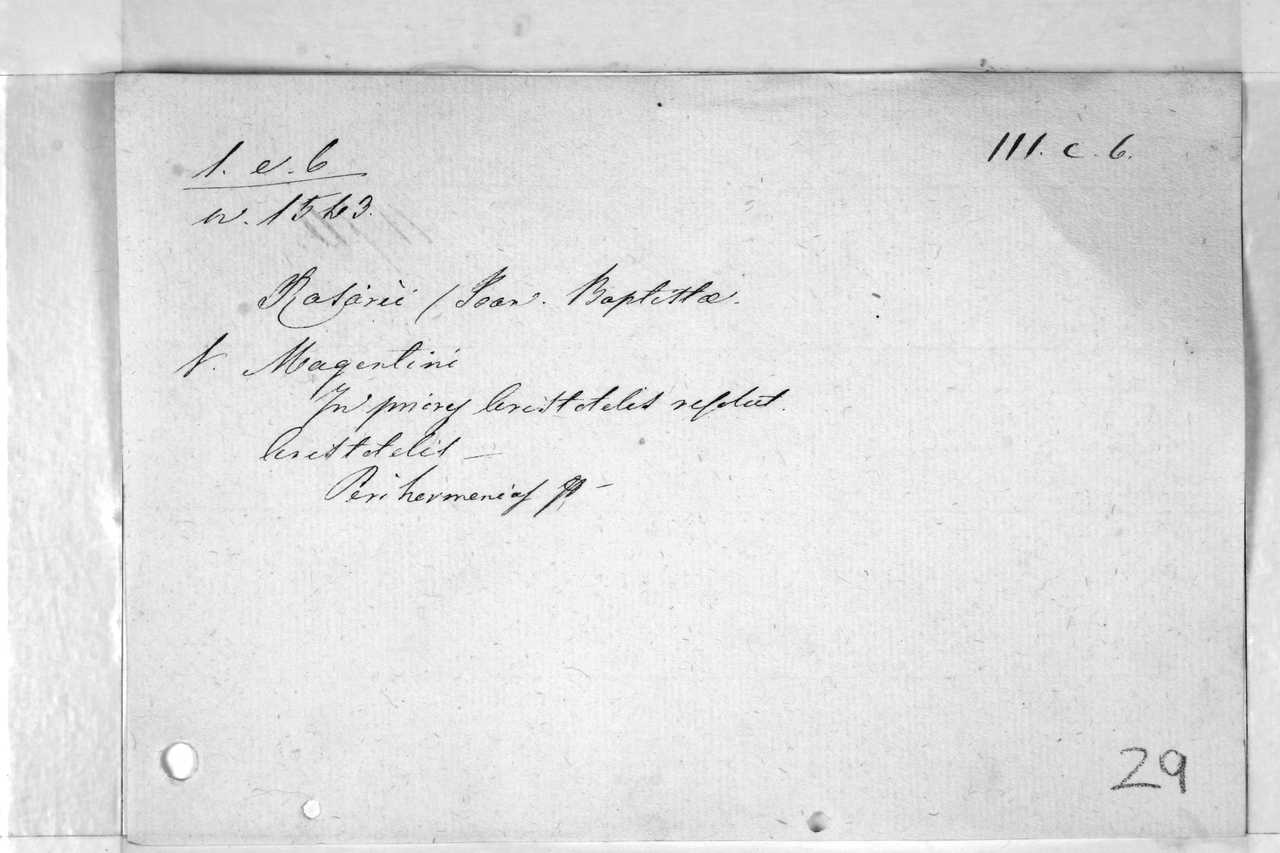 1. c. 6
III. c. 6.
n. 1563.
Rasarii / Joan. Baptistæ.
V. Magentini
In priores Aristotelis resolut.
Aristotelis —
Perihermenias
29